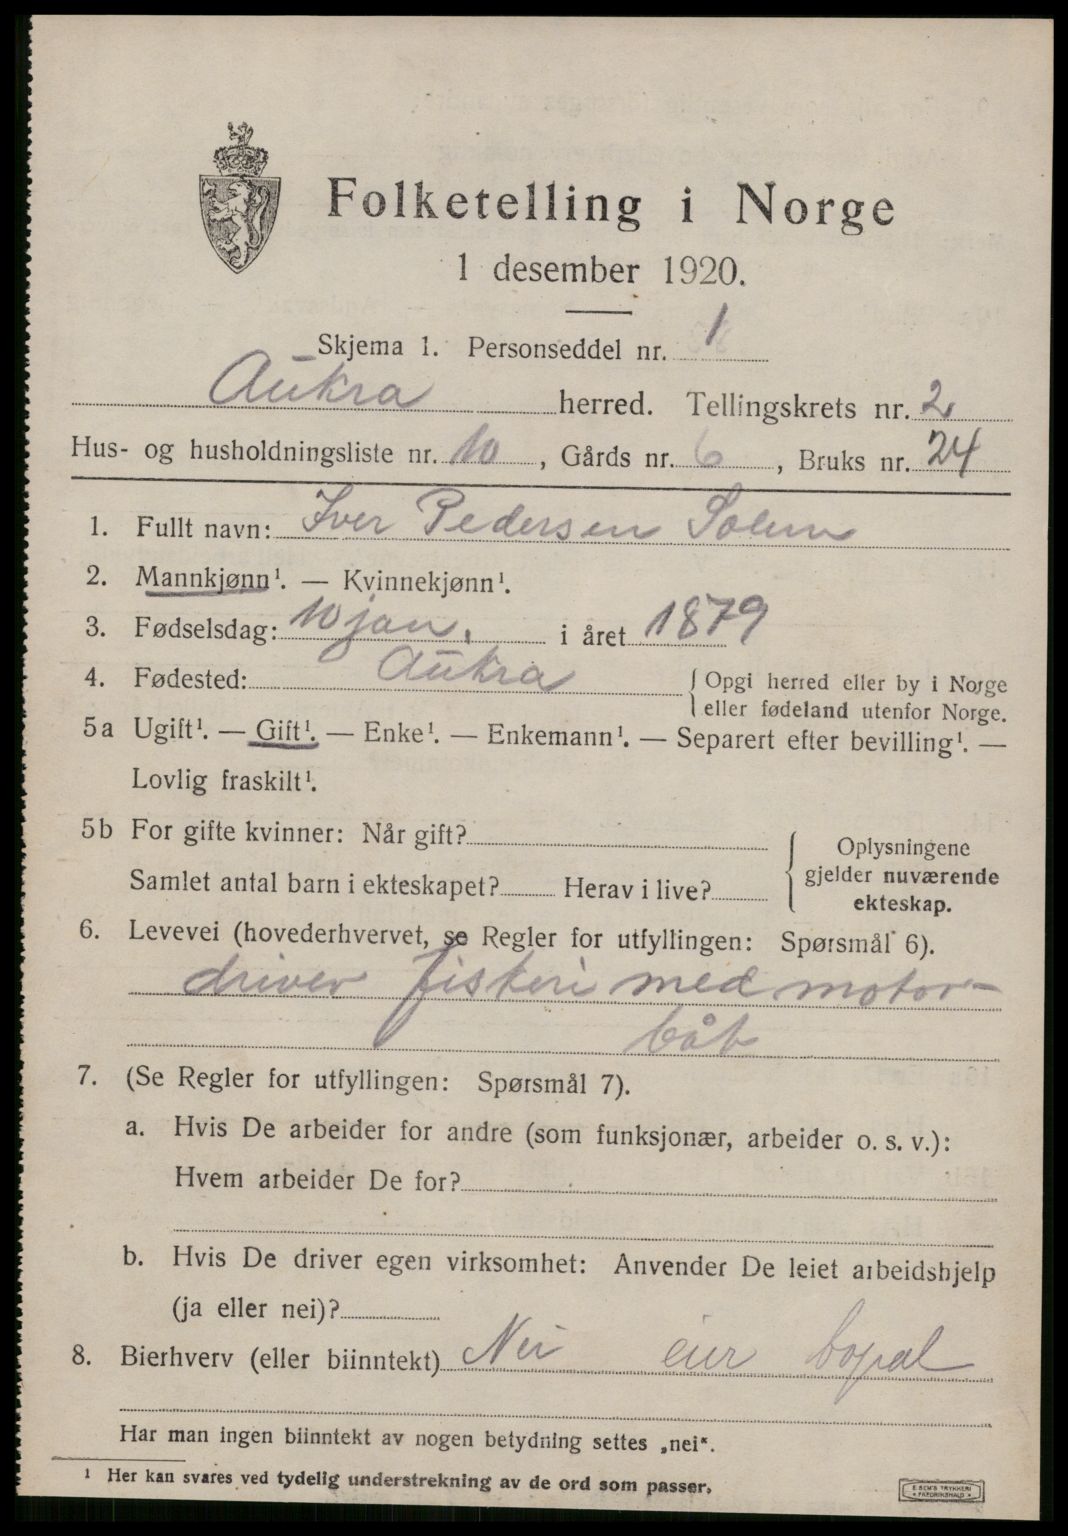 Folketelling i Norge
1 desember 1920.
Skjema 1. Personseddel nr. 1
Aukra herred. Tellingskrets nr. 2
Hus- og husholdningsliste nr. 10, Gårds nr. 6, Bruks nr. 24
1. Fullt navn: Iver Pedersen Solem
2. Mannkjønn¹. — Kvinnekjønn¹.
3. Fødselsdag: 10 jan. i året 1879
4. Fødested: Aukra { Opgi herred eller by i Norge
eller fødeland utenfor Norge.
5a Ugift¹. — Gift¹. — Enke¹. — Enkemann¹. — Separert efter bevilling¹. —
Lovlig fraskilt¹.
5b For gifte kvinner: Når gift?
Samlet antal barn i ekteskapet? Herav i live?
{ Oplysningene
gjelder nuværende
ekteskap.
6. Levevei (hovederhvervet, se Regler for utfyllingen: Spørsmål 6).
driver fiskeri med motor-
båt
7. (Se Regler for utfyllingen: Spørsmål 7).
a. Hvis De arbeider for andre (som funksjonær, arbeider o. s. v.):
Hvem arbeider De for?
b. Hvis De driver egen virksomhet: Anvender De leiet arbeidshjelp
(ja eller nei)?
8. Bierhverv (eller biinntekt) Nei eier bopal
Har man ingen biinntekt av nogen betydning settes „nei“.
¹ Her kan svares ved tydelig understrekning av de ord som passer.
E. SEM'S TRYKKERI
FREDRIKSHALD